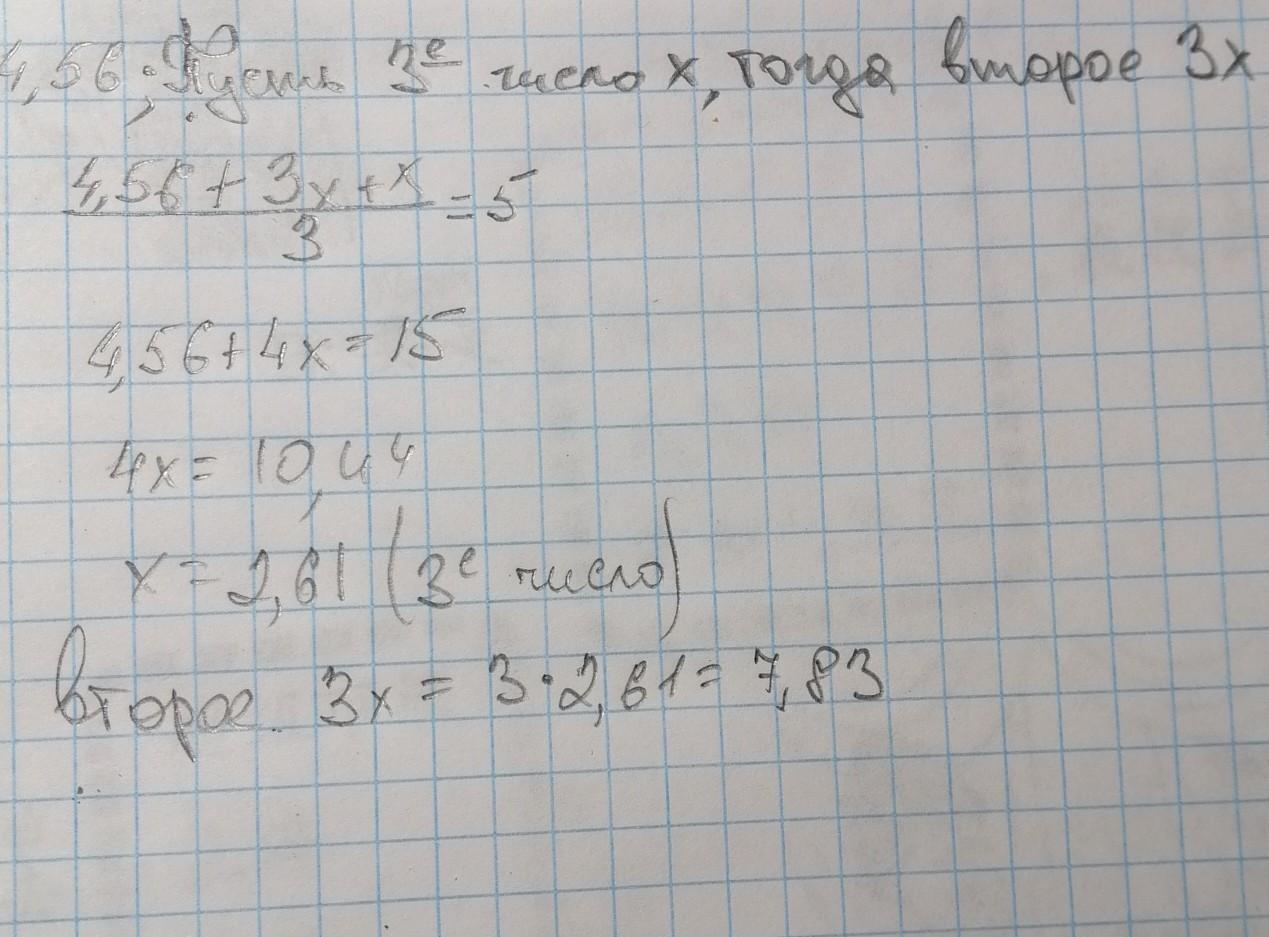 4,56; Пусть 3е число x, тогда второе 3x
4,56 + 3x + x
3
= 5
4,56 + 4x = 15
4x = 10,44
x = 2,61 (3е число)
второе 3x = 3·2,61 = 7,83